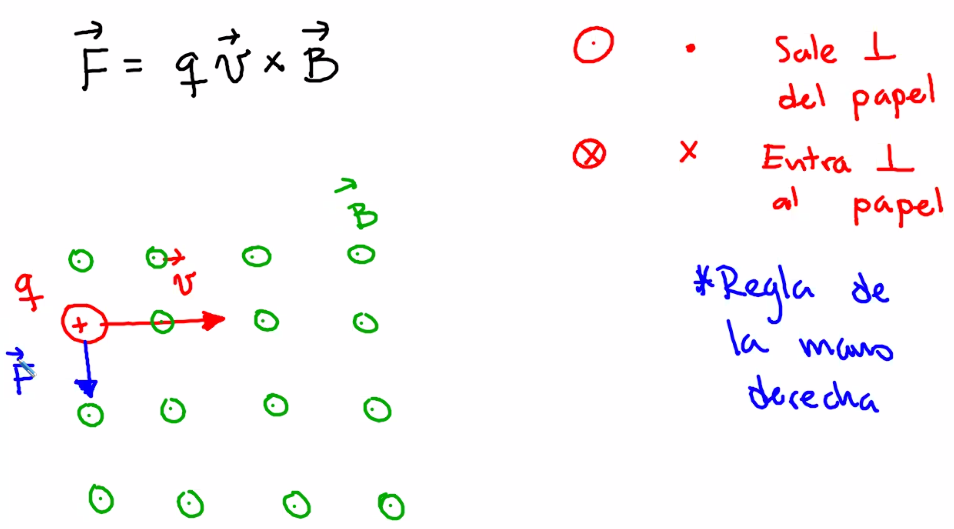 F = q v × B
⊙ • Sale ⊥
del papel
⊗ × Entra ⊥
al papel
B
q
v
+
F
*Regla de
la mano
derecha